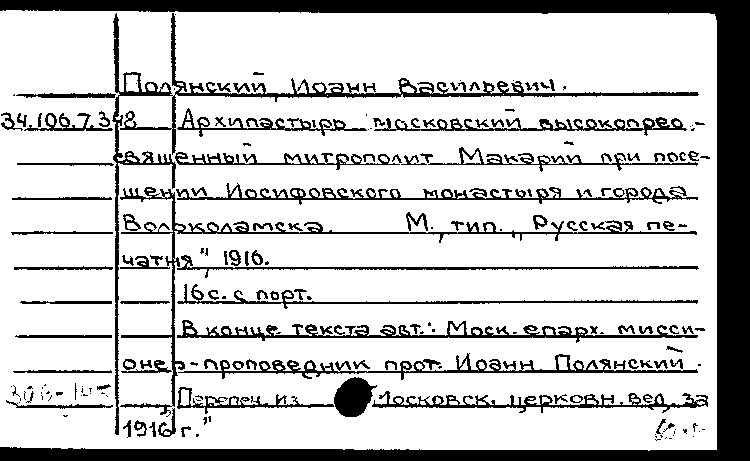 Полянский, Иоанн Васильевич.
34.106.7.348 Архипастырь московский высокопрео-
священный митрополит Макарий при посе-
щении Иосифовского монастыря и города
Волоколамска. М., тип. „Русская пе-
чатня", 1916.
16 с. с порт.
В конце текста авт.: Моск. епарх. мисси-
онер-проповедник прот. Иоанн Полянский.
Перепеч. из „Московск. церковн. вед. за
1916 г."